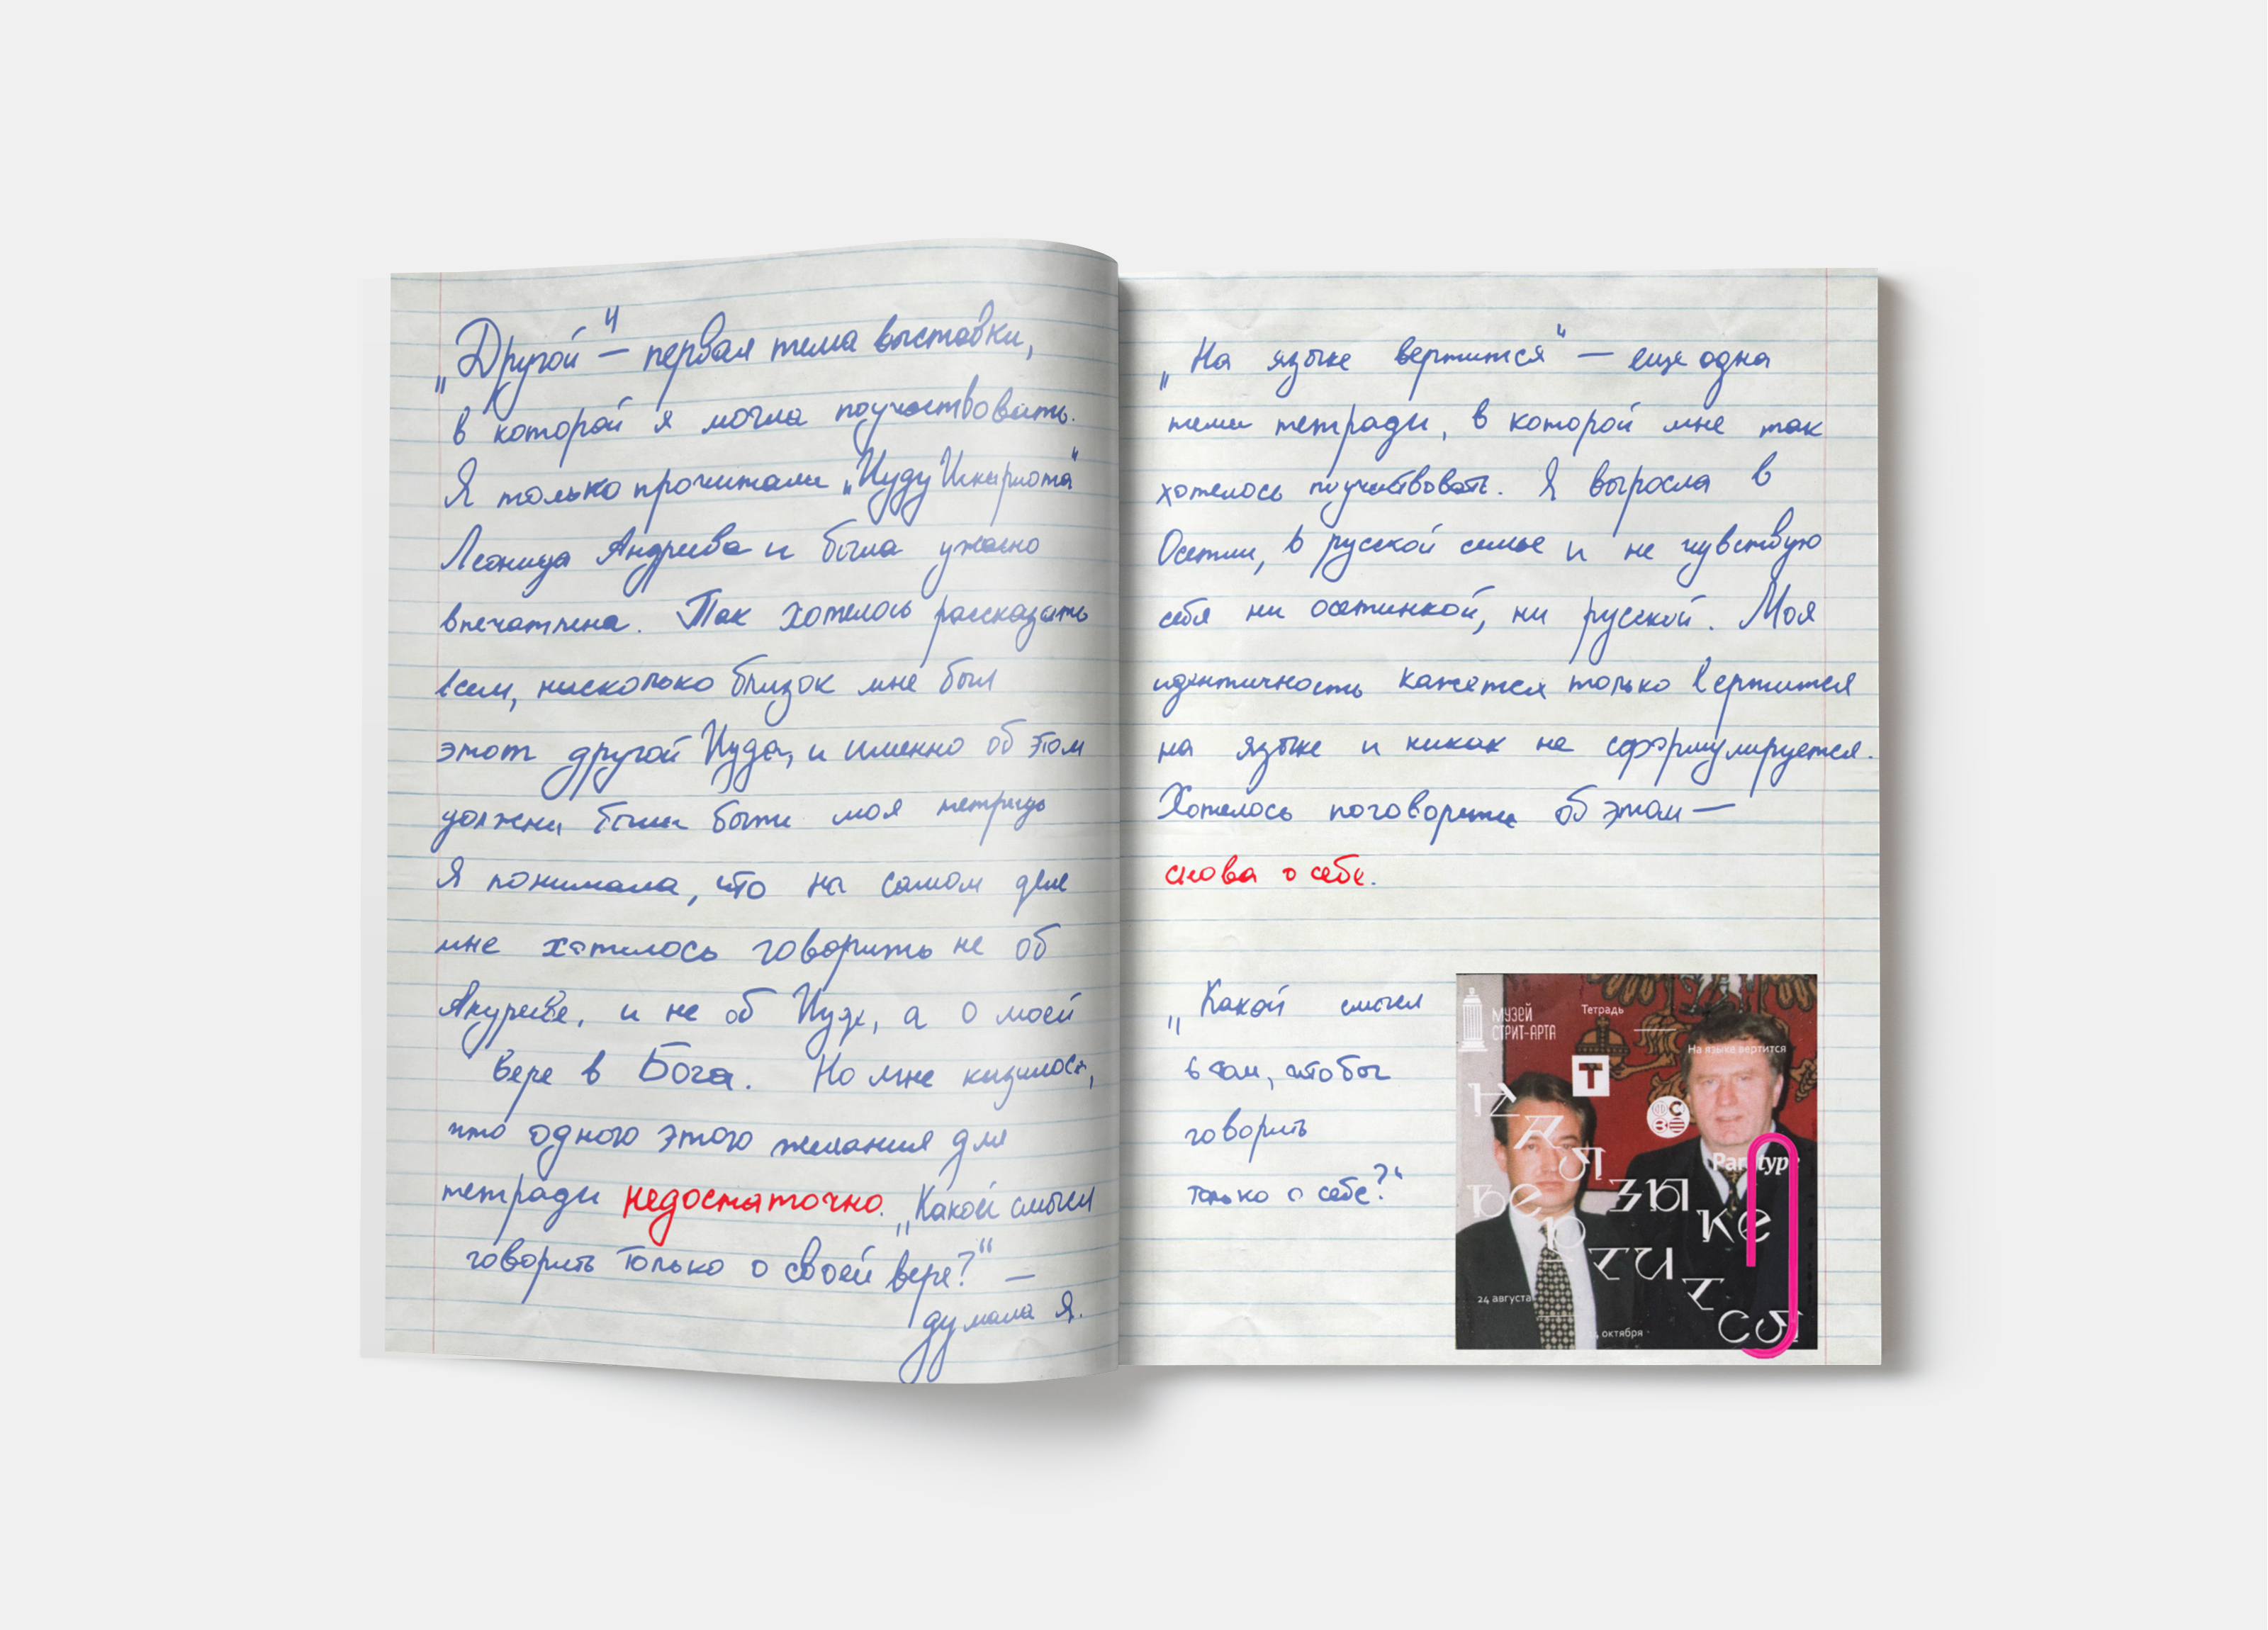 „Другой“ — первая тема выставки,
в которой я могла поучаствовать.
Я только прочитала „Иуду Искариота“
Леонида Андреева и была ужасно
впечатлена. Так хотелось рассказать
всем, насколько близок мне был
этот другой Иуда, и именно об этом
должна была быть моя тетрадь
Я понимала, что на самом деле
мне хотелось говорить не об
Андрееве, и не об Иуде, а о моей
вере в Бога. Но мне казалось,
что одного этого желания для
тетради недостаточно. „Какой смысл
говорить только о своей вере?“ —
думала я.
„На языке вертится“ — еще одна
тема тетради, в которой мне так
хотелось поучаствовать. Я выросла в
Осетии, в русской семье и не чувствую
себя ни осетинкой, ни русской. Моя
идентичность кажется только вертится
на языке и никак не сформулируется.
Хотелось поговорить об этом —
снова о себе.
„Какой смысл
в том, чтобы
говорить
только о себе?“
МУЗЕЙ
СТРИТ-АРТА
Тетрадь
На языке вертится
Т
Paratype
на языке
вертится
24 августа
октября